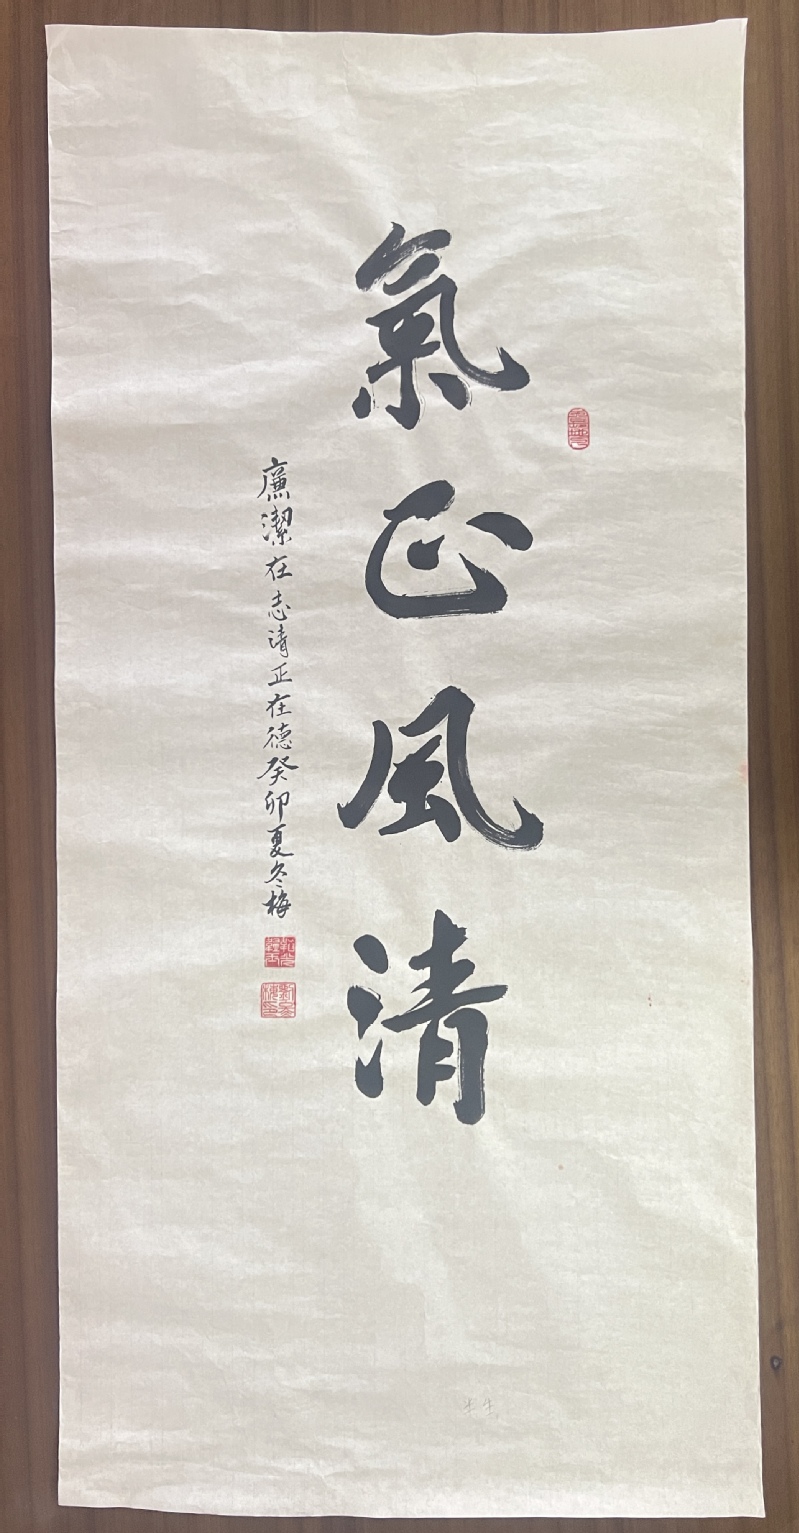 氣正風清
廉潔在志清正在德癸卯夏冬梅